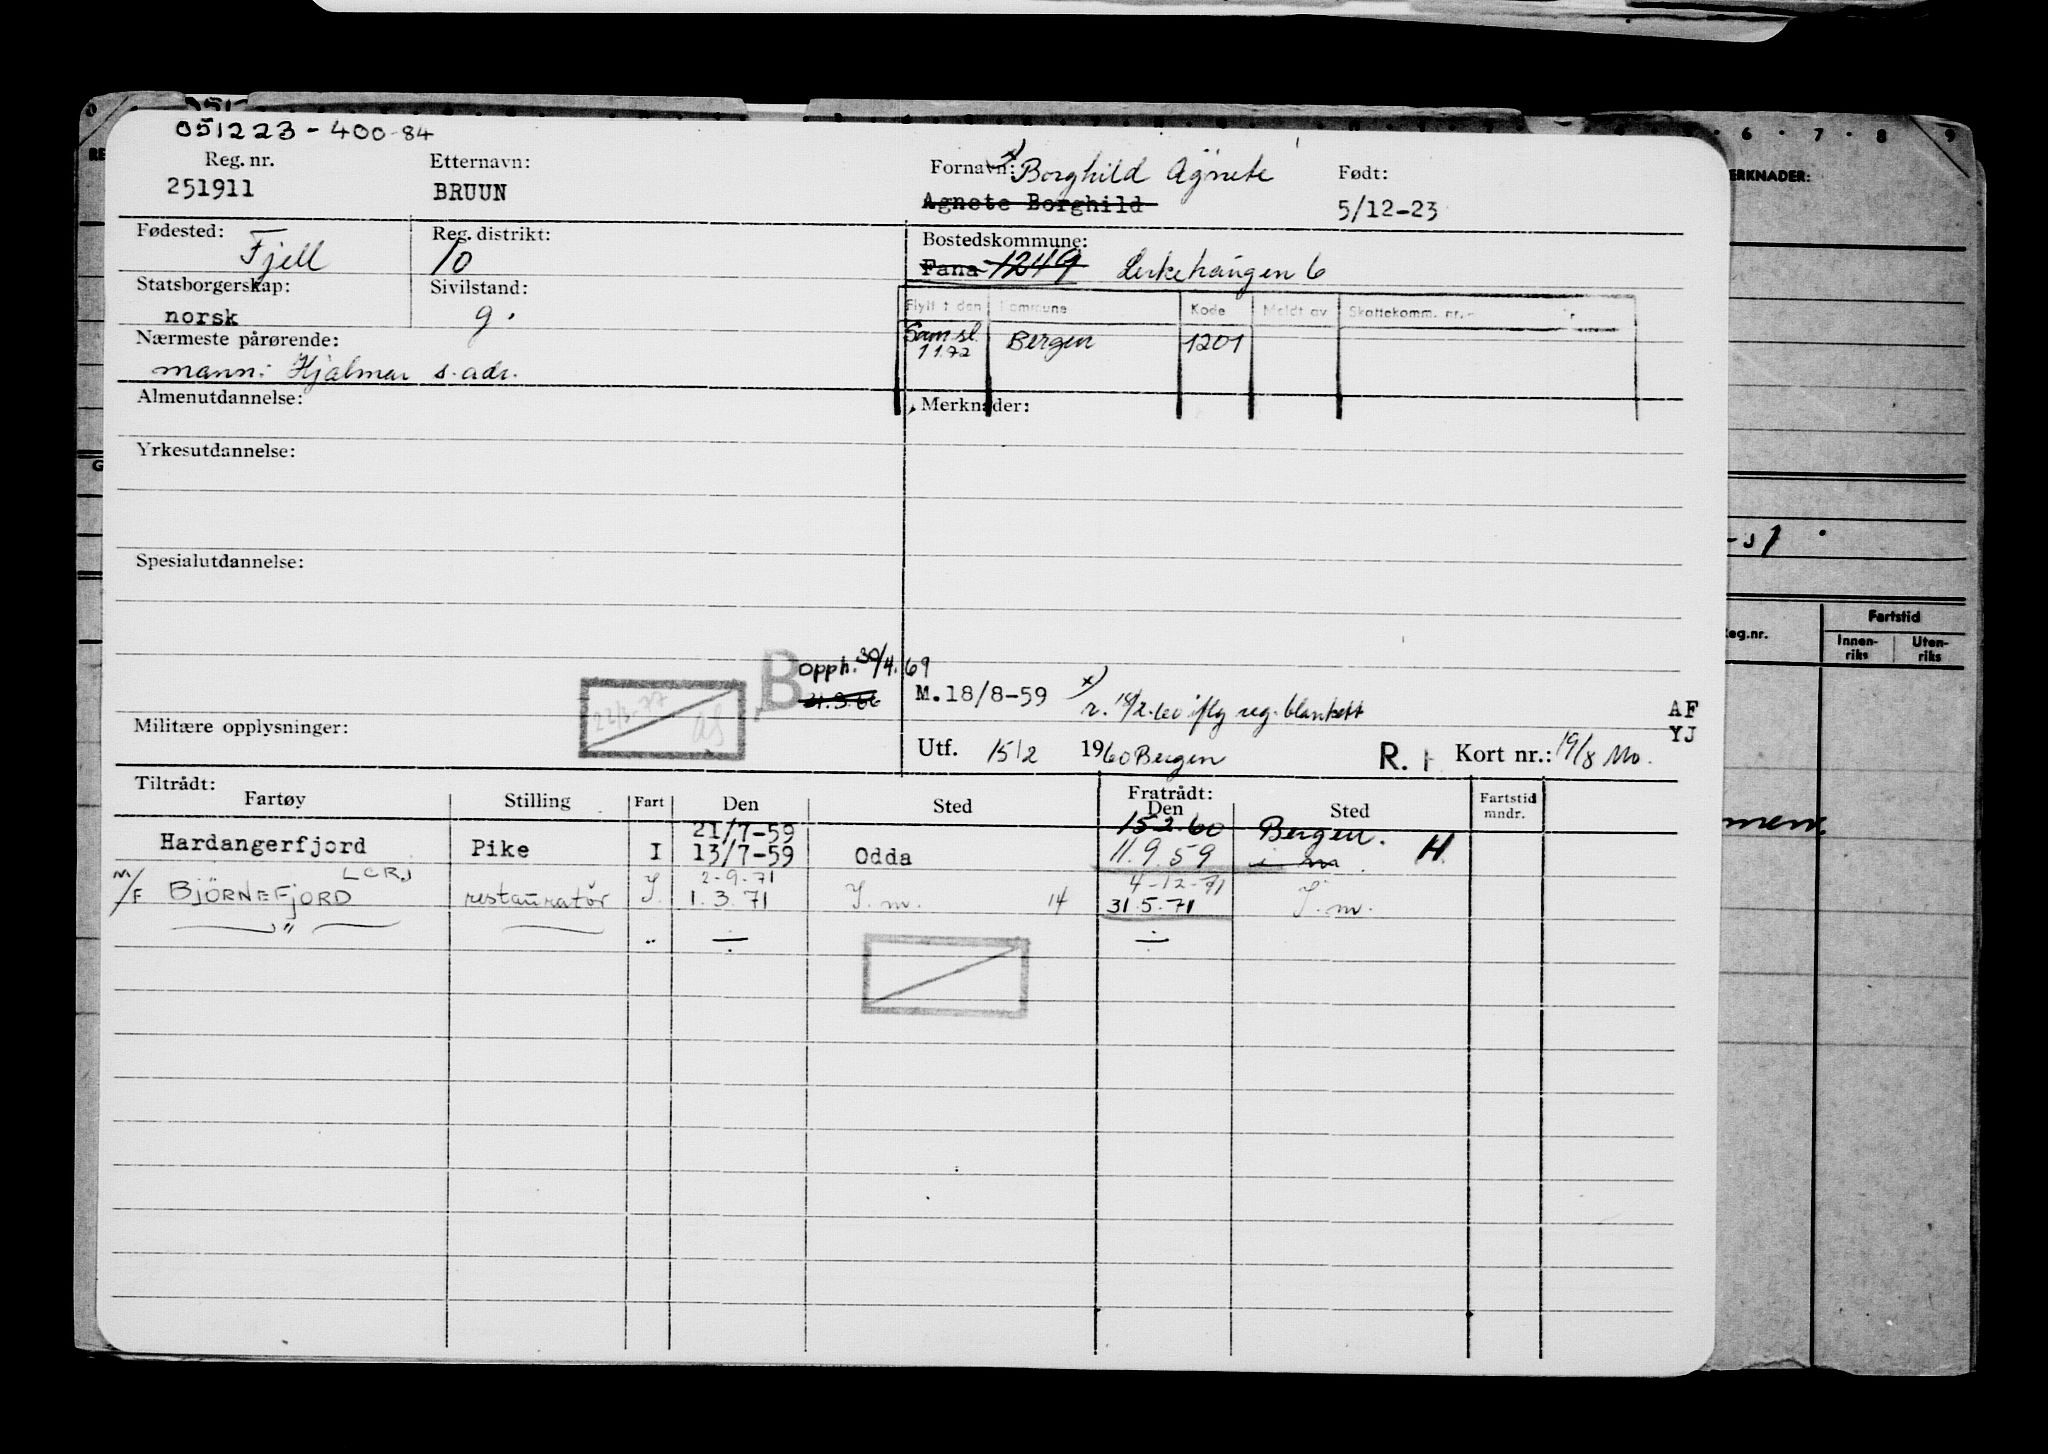 051223-400-84
Reg. nr. Etternavn: Fornavn: x) Borghild Agnete Født:
251911 BRUUN Agnete Borghild 5/12-23
Fødested: Fjell Reg. distrikt: 10 Bostedskommune:
Fana 1249 Lerkehaugen 6
Statsborgerskap: Sivilstand:
norsk g.
Flytt t den Kommune Kode Meldt av Skattekomm. nr.
Sam sl. 1 1.72 Bergen 1201
Nærmeste pårørende:
mann: Hjalmar s. adr.
Almenutdannelse: Merknader:
Yrkesutdannelse:
Spesialutdannelse:
B Opph. 30/4.69
31.3.66
M.18/8-59 x) r. 18/2.60 iflg reg. blankett
AF
YJ
22/3.77
Militære opplysninger: Utf. 15/2 1960 Bergen R. Kort nr.: 19/8 Mo.
Tiltrådt: Fratrådt:
Fartøy Stilling Fart Den Sted Den Sted Fartstid mndr.
21/7-59 15.2.60 Bergen.
Hardangerfjord Pike I 13/7-59 Odda 11.9 59 i m H
LCRJ 2-9.71 4-12-71
M/F BJÖRNEFJORD restauratør I. 1.3.71 I. m. 14 31.5.71 I. m.
" .. ÷ ÷
6 7 8 9
ERKNADER:
Reg.nr. Fartstid
Innen-riks Uten-riks